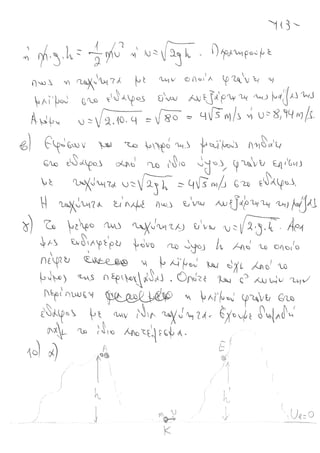 -113-
ή m.g.h = 1/2 mυ² ή υ=√2gh. Παρατηρούμε
πως η ταχύτητα με την οποία φτάνει η
μαϊμού στο έδαφος είναι ανεξάρτητη της μάζας της
Άρα υ=√2.10.4 = √80 = 4√5 m/s ή υ=8,94 m/s.
β) Εφόσον και το μικρό της μαϊμούς πηδάει
στο έδαφος από το ίδιο ύψος, φτάνει επίσης
με ταχύτητα υ=√2gh = 4√5 m/s στο έδαφος.
Η ταχύτητα είπαμε πως είναι ανεξάρτητη της μάζας
γ) Το μέτρο της ταχύτητας είναι υ=√2.g.h. Άρα
μας ενδιαφέρει μόνο το ύψος h από το οποίο
πέφτει η μαϊμού και όχι από το
μήκος της περικοκλάδας. Οπότε και σ' αυτήν την
περίπτωση η μαϊμού φτάνει στο
έδαφος με την ίδια ταχύτητα. Έχουμε δηλαδή
πάλι το ίδιο αποτέλεσμα.
10) α)
A
E
h
h
K
Uκ=0